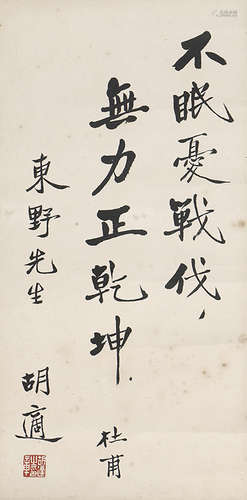 不眠憂戰伐，
無力正乾坤．
杜甫
東野先生
胡適